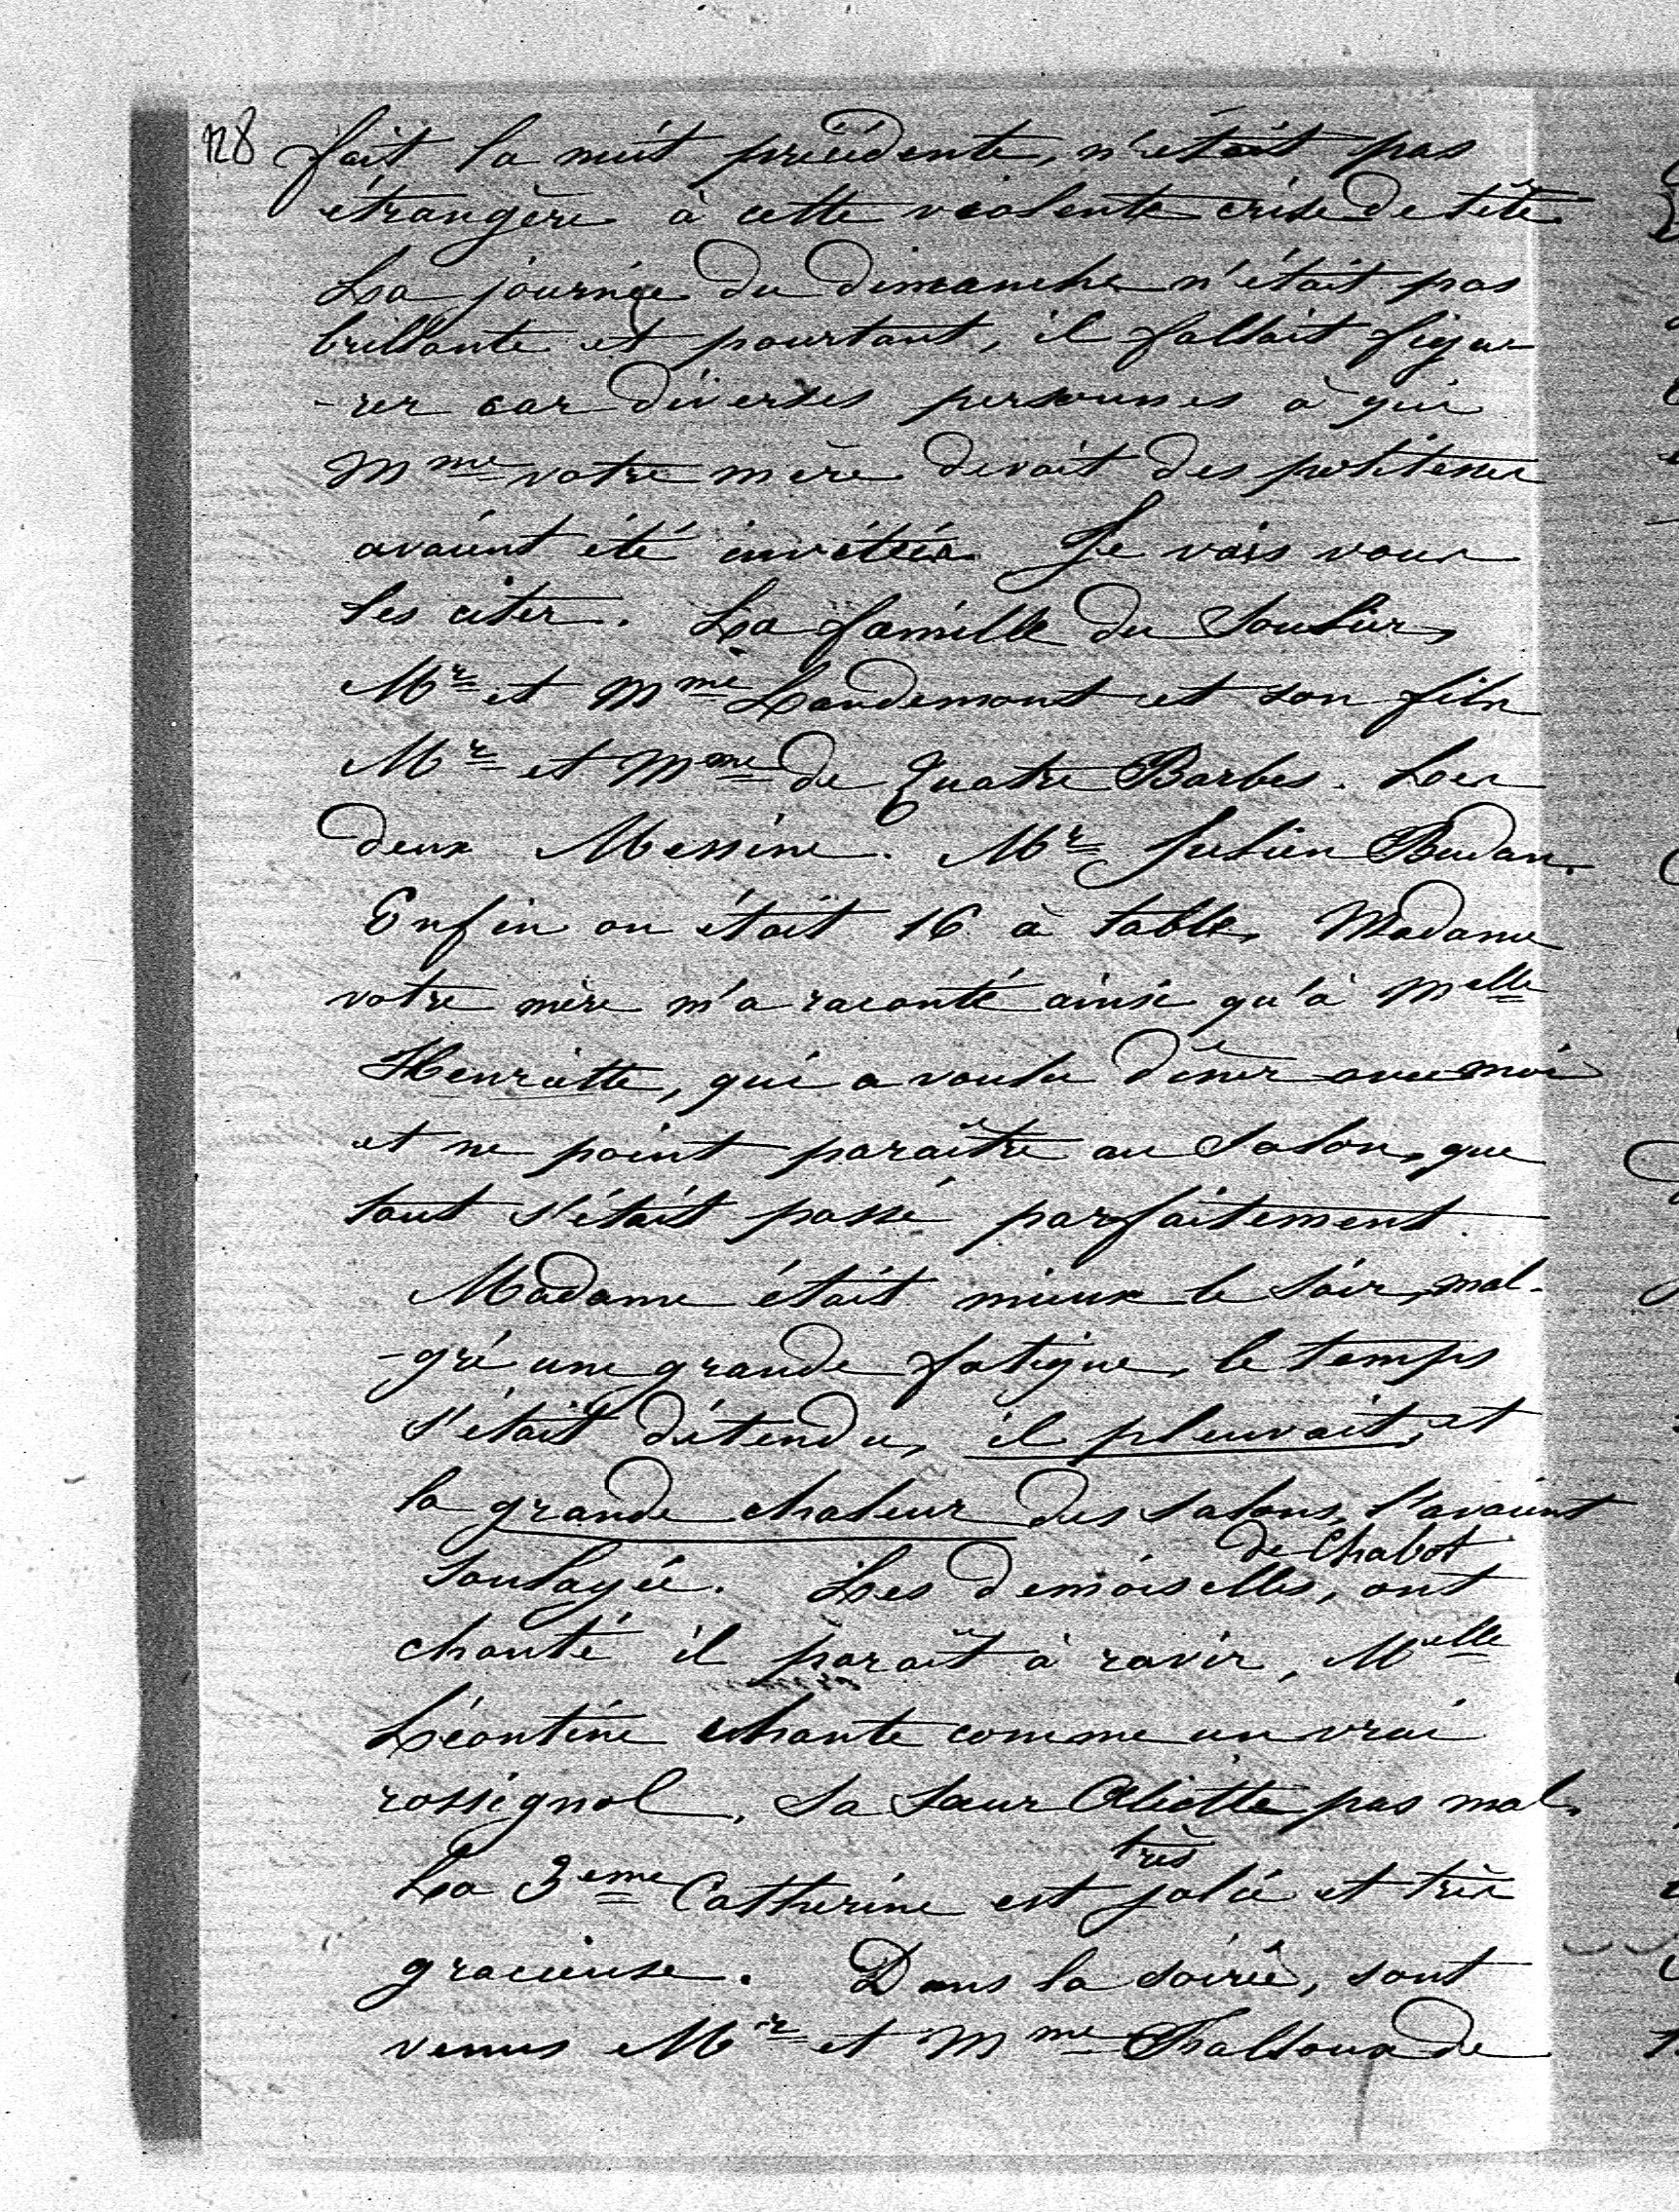 128 fait la nuit précédente, n'était pas
étrangère à cette violente crise de tête
La journée du dimanche n'était pas
brillante et pourtant, il fallait figu
-rer car diverses personnes à qui
Mme votre mère devait des politesses
avaient été invitées. Je vais vous
les citer. La famille du Soulier,
Mr et Mme Landemont et son fils
Mr et Mme de Quatre Barbes. Les
deux Messine. Mr Julien Budan.
Enfin on était 16 à table, Madame
votre mère m'a raconté ainsi qu'à Melle
Henriette, qui a voulu dîner avec moi
et ne point paraître au salon, que
tout s'était passé parfaitement
Madame était mieux le soir, mal-
-gré une grande fatigue, le temps
s'était détendu, il pleuvait, et
la grande chaleur des salons, l'avaient
de Chabot
soulagée. Les demoiselles, ont
chanté il paraît à ravir, Melle
Léontine chante comme un vrai
rossignol, sa sœur Aliette pas mal,
très
La 3eme Catherine est jolie et très
gracieuse. Dans la soirée, sont
venus Mr et Mme de